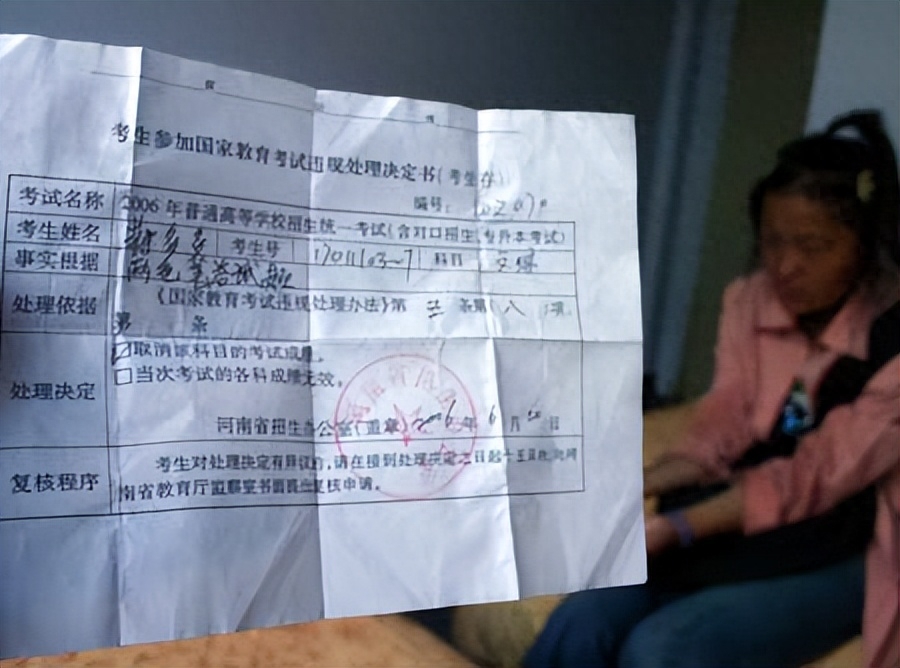 考生参加国家教育考试违规处理决定书(考生存)
编号:
考试名称 2006年普通高等学校招生统一考试(含对口招生、专升本考试)
考生姓名 考生号 科目 文综
事实根据 两色笔答试题
处理依据 《国家教育考试违规处理办法》第 条第(八)项
第 条
处理决定 ☑取消该科目的考试成绩。
☐当次考试的各科成绩无效。
河南省招生办公室(盖章)2006年6月 日
复核程序 考生对处理决定有异议的,请在接到处理决定之日起十五日内,向河
南省教育厅监察室书面提出复核申请。